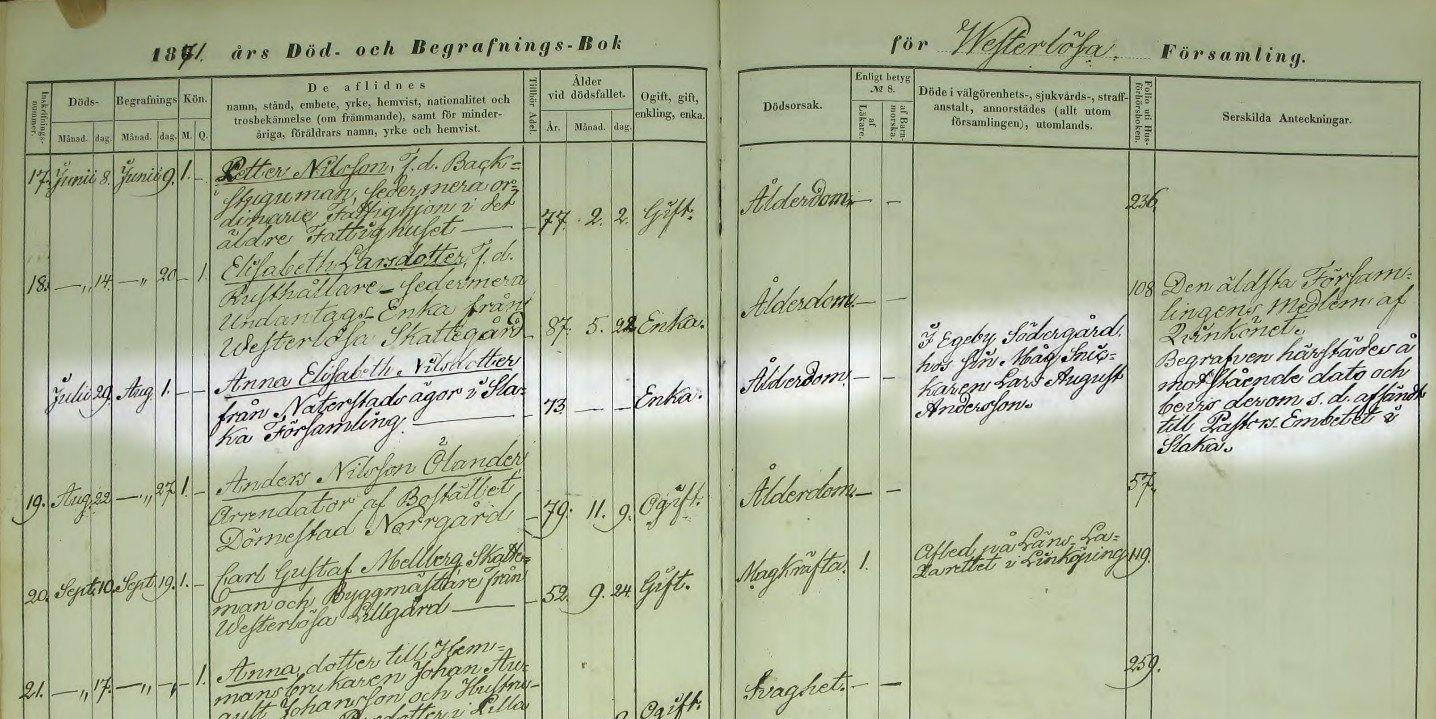 1871 års Död- och Begrafnings-Bok
för Westerlösa Församling.
Inskrifnings-nummer.
Döds-
Månad. dag.
Begrafnings
Månad. dag.
Kön.
M. Q.
De aflidnes
namn, stånd, embete, yrke, hemvist, nationalitet och
trosbekännelse (om främmande), samt för minder-
åriga, föräldrars namn, yrke och hemvist.
Tillhör Adel.
Ålder
vid dödsfallet.
År. Månad. dag.
Ogift, gift,
enkling, enka.
Dödsorsak.
Enligt betyg
№ 8.
af Läkare.
af Barnmorska.
Döde i välgörenhets-, sjukvårds-, straff-
anstalt, annorstädes (allt utom
församlingen), utomlands.
Folio uti Hus-
förhörsboken.
Serskilda Anteckningar.
17. Junii 8. Junii 9. 1. –
Petter Nilsson, f.d. Back=
stuguman, sedermera or=
dinarie Fattighjon i det
äldre Fattighuset
77. 2. 2. Gift. Ålderdom. – – 236.
18. –„ 14. –„ 20 – 1.
Elisabeth Larsdotter, f.d.
Rusthållare– sedermera
Undantags– Enka från
Westerlösa Skattegård
87. 5. 22 Enka. Ålderdom. – – 108
Den äldsta Försam=
lingens medlem af
Qvinkönet.
Julii 29. Aug 1. –
Anna Elisabeth Nilsdotter
från Naterstads ägor i Sla-
ka Församling.
73. – – Enka. Ålderdom. – –
I Egeby Södergård
hos sin Måg Snic-
karen Lars August
Andersson.
Begrafven härstädes å
motstående dato och
bevis derom s.d. afsändt
till Pastors Embetet i
Slaka.
19. Aug. 22 –„ 27. 1. –
Anders Nilsson Ölander,
Arrendator af Bostället
Dömestad Norrgård
79. 11. 9. Ogift. Ålderdom. – – 57.
20. Sept. 10. Sept. 19. 1. –
Carl Gustaf Mellberg, Skatte-
man och Byggmästare från
Westerlösa Lillgård
52. 9. 24. Gift. Magkräfta. 1.
Afled på Läns La-
zarettet i Linköping
119.
21. –„ 17. –„ –„ – 1.
Anna, dotter till Hem-
mansbrukaren Johan Au-
gust Johansson och Hustru
Ogift. Svaghet. – – 259.
dotter i Lilla